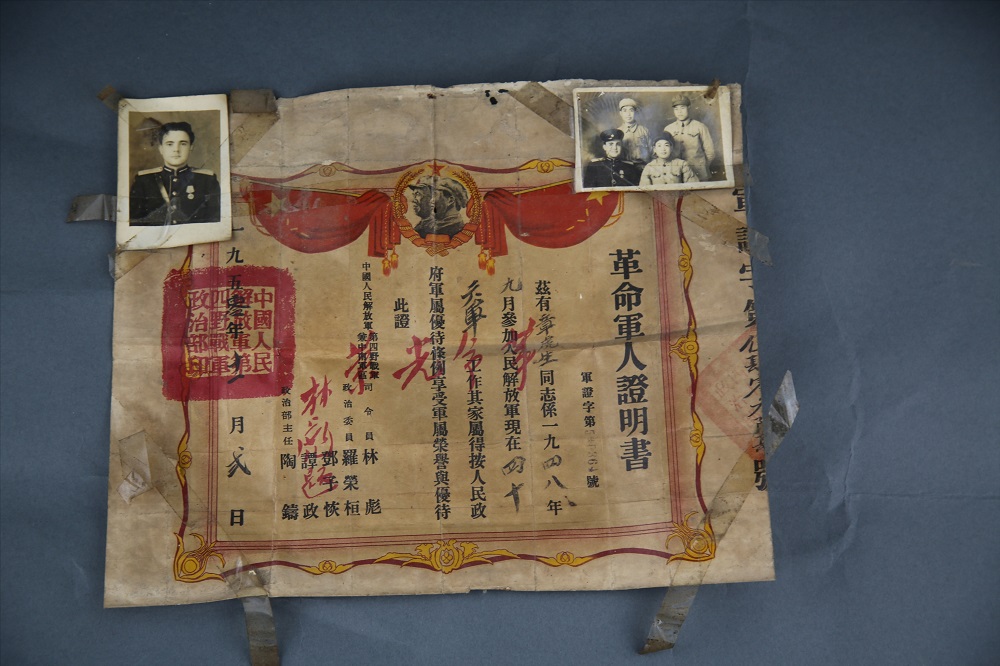 革命軍人證明書
軍證字第號
茲有同志係一九四八年
九月參加人民解放軍現在四十
軍工作其家屬得按人民政
府軍屬優待條例享受軍屬榮譽與優待
此證
中國人民解放軍第四野戰軍兼中南軍區司令員林彪
政治委員羅榮桓
鄧子恢
譚政
政治部主任陶鑄
一九五零年十一月弍日
中國人民解放軍第四野戰軍政治部印
光